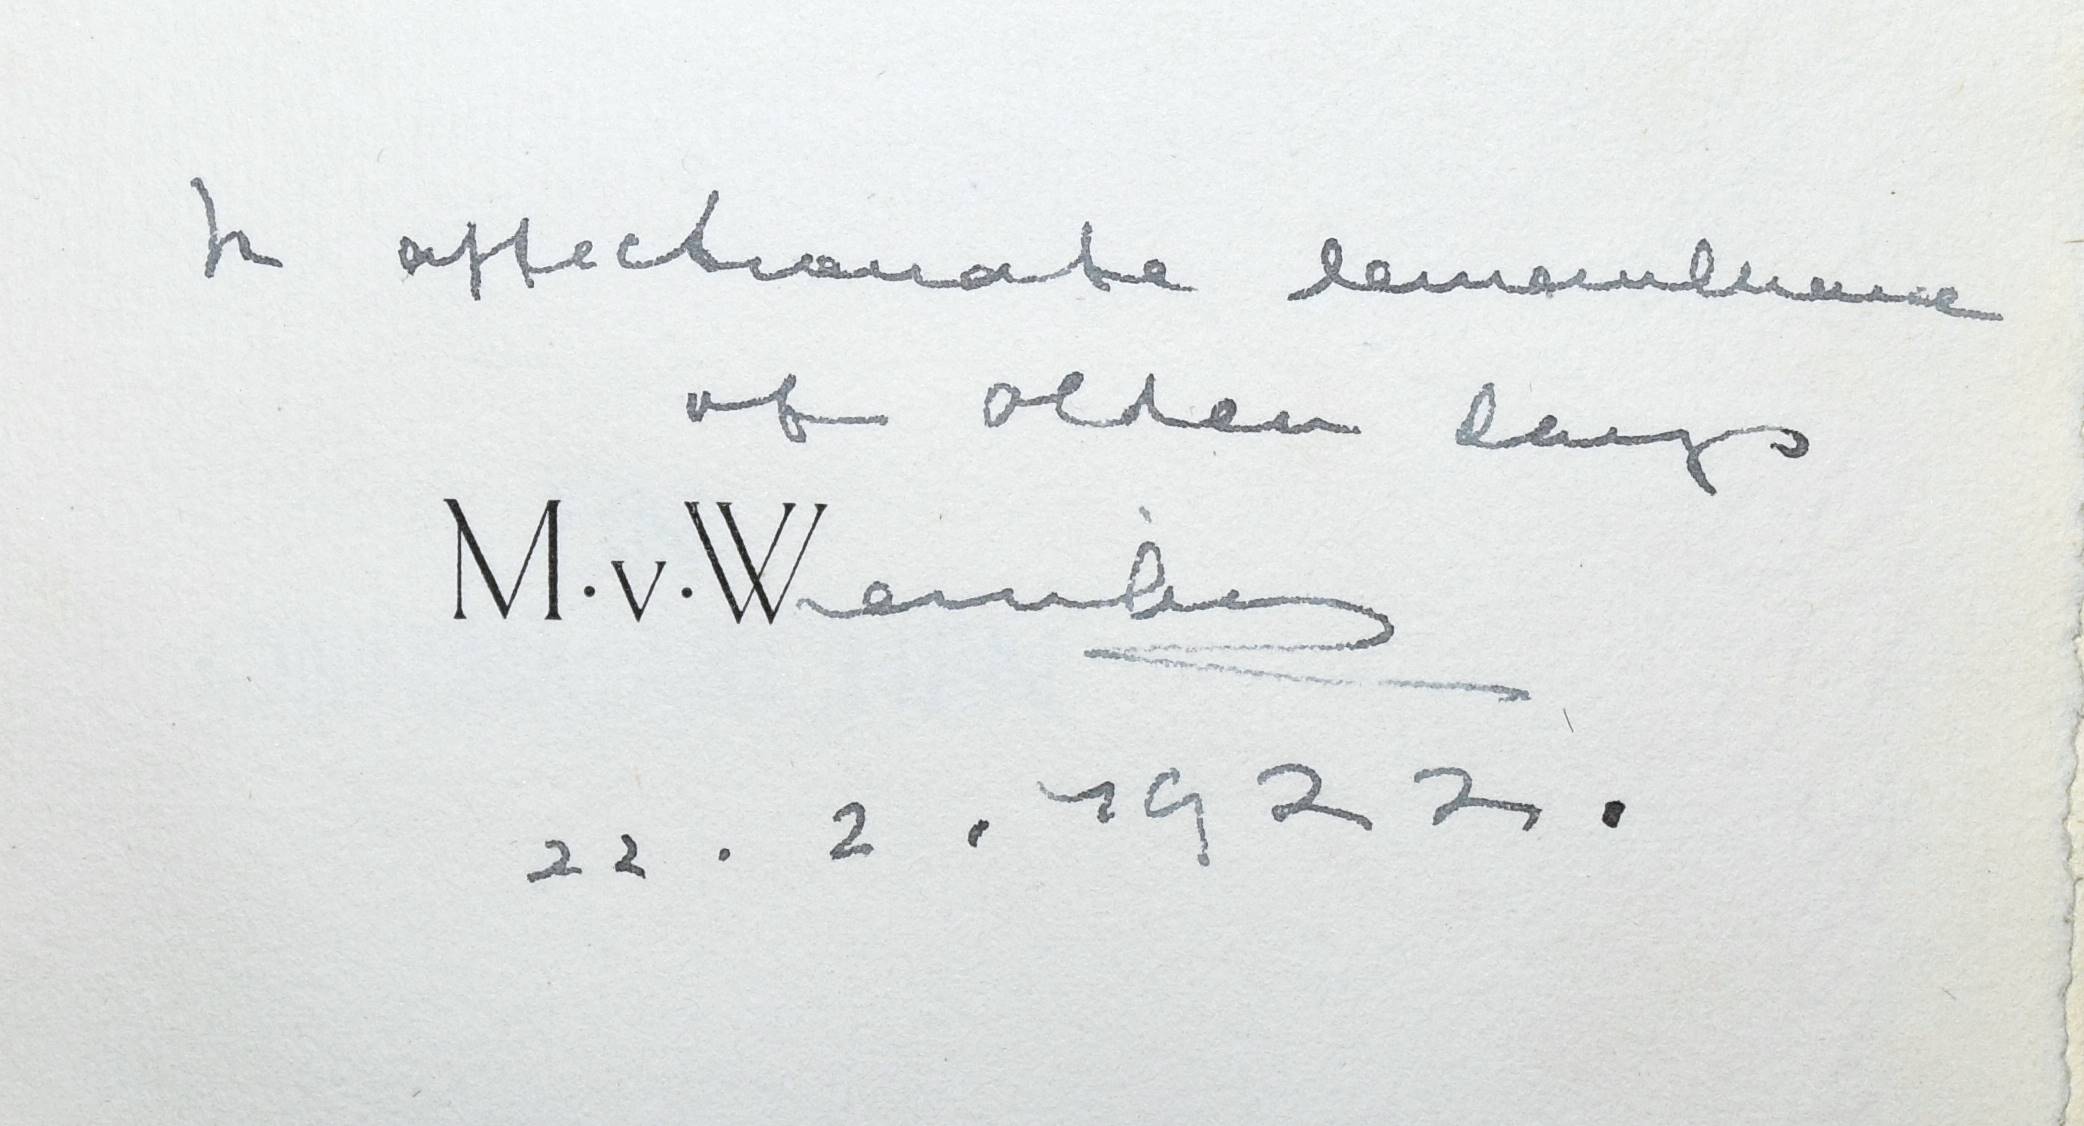 In affectionate remembrance
of olden days
M.v.W
22.2.1922.